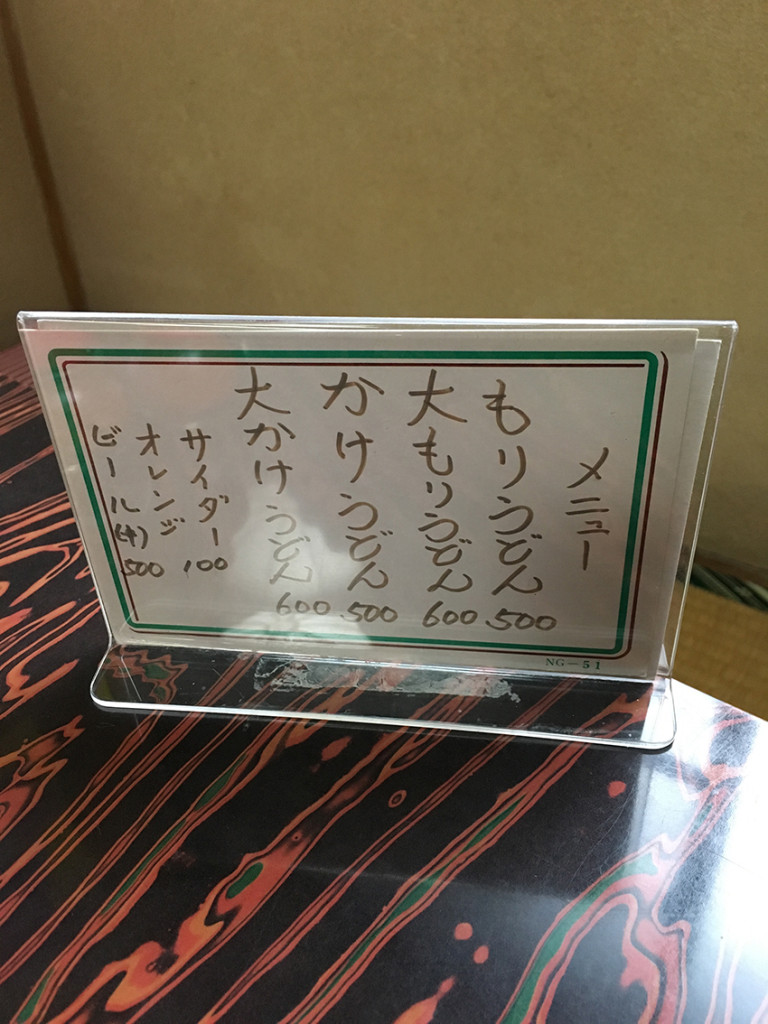 メニュー
もりうどん 500
大もりうどん 600
かけうどん 500
大かけうどん 600
サイダー 100
オレンジ
ビール(中) 500
NG-51